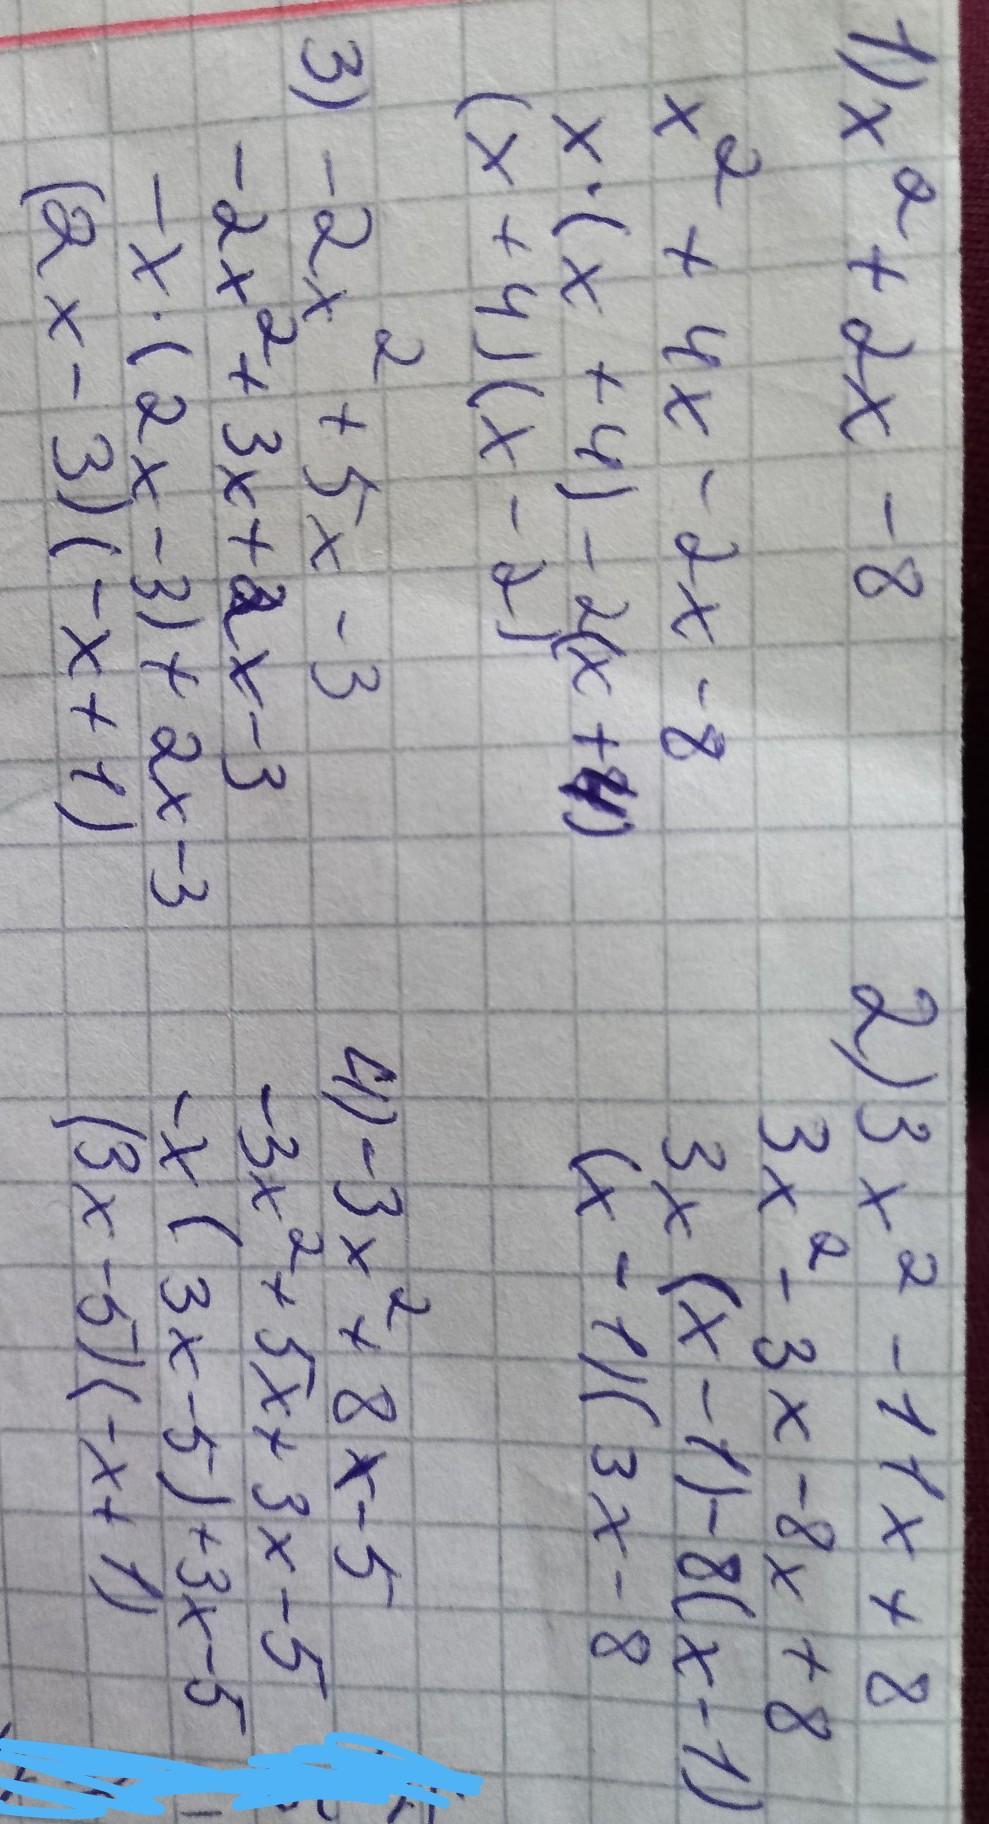 1) x² + 2x - 8
x² + 4x - 2x - 8
x · (x + 4) - 2(x + 4)
(x + 4)(x - 2)
2) 3x² - 11x + 8
3x² - 3x - 8x + 8
3x (x - 1) - 8(x - 1)
(x - 1)(3x - 8
3) -2x² + 5x - 3
-2x² + 3x + 2x - 3
-x · (2x - 3) + 2x - 3
(2x - 3)(-x + 1)
4) -3x² + 8x - 5
-3x² + 5x + 3x - 5
-x (3x - 5) + 3x - 5
(3x - 5)(-x + 1)